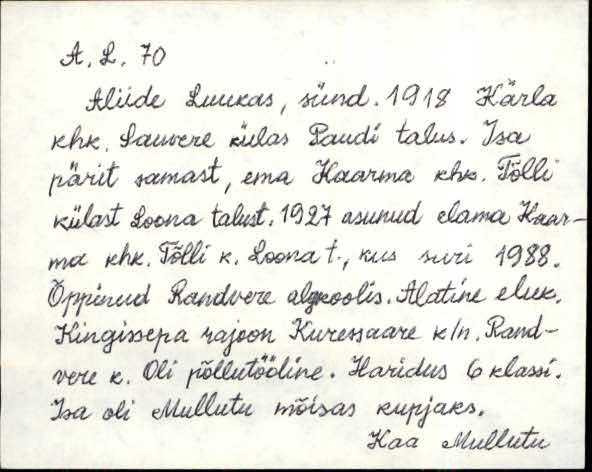 A. L. 70
Aliide Luukas, sünd. 1918 Kärla
khk. Sauvere külas Paudi talus. Isa
pärit samast, ema Kaarma khk. Tõlli
külast Loona talust. 1927 asunud elama Kaar-
ma khk. Tõlli k. Loona t., kus suri 1988.
Õppinud Randvere algkoolis. Alatine eluk.
Kingissepa rajoon Kuressaare k/n. Rand-
vere k. Oli põllutööline. Haridus 6 klassi.
Isa oli Mullutu mõisas kupjaks.
Kaa Mullutu